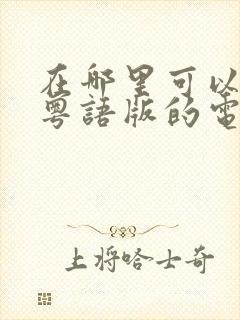 在哪里可以
粤語版的電
上将哈士奇